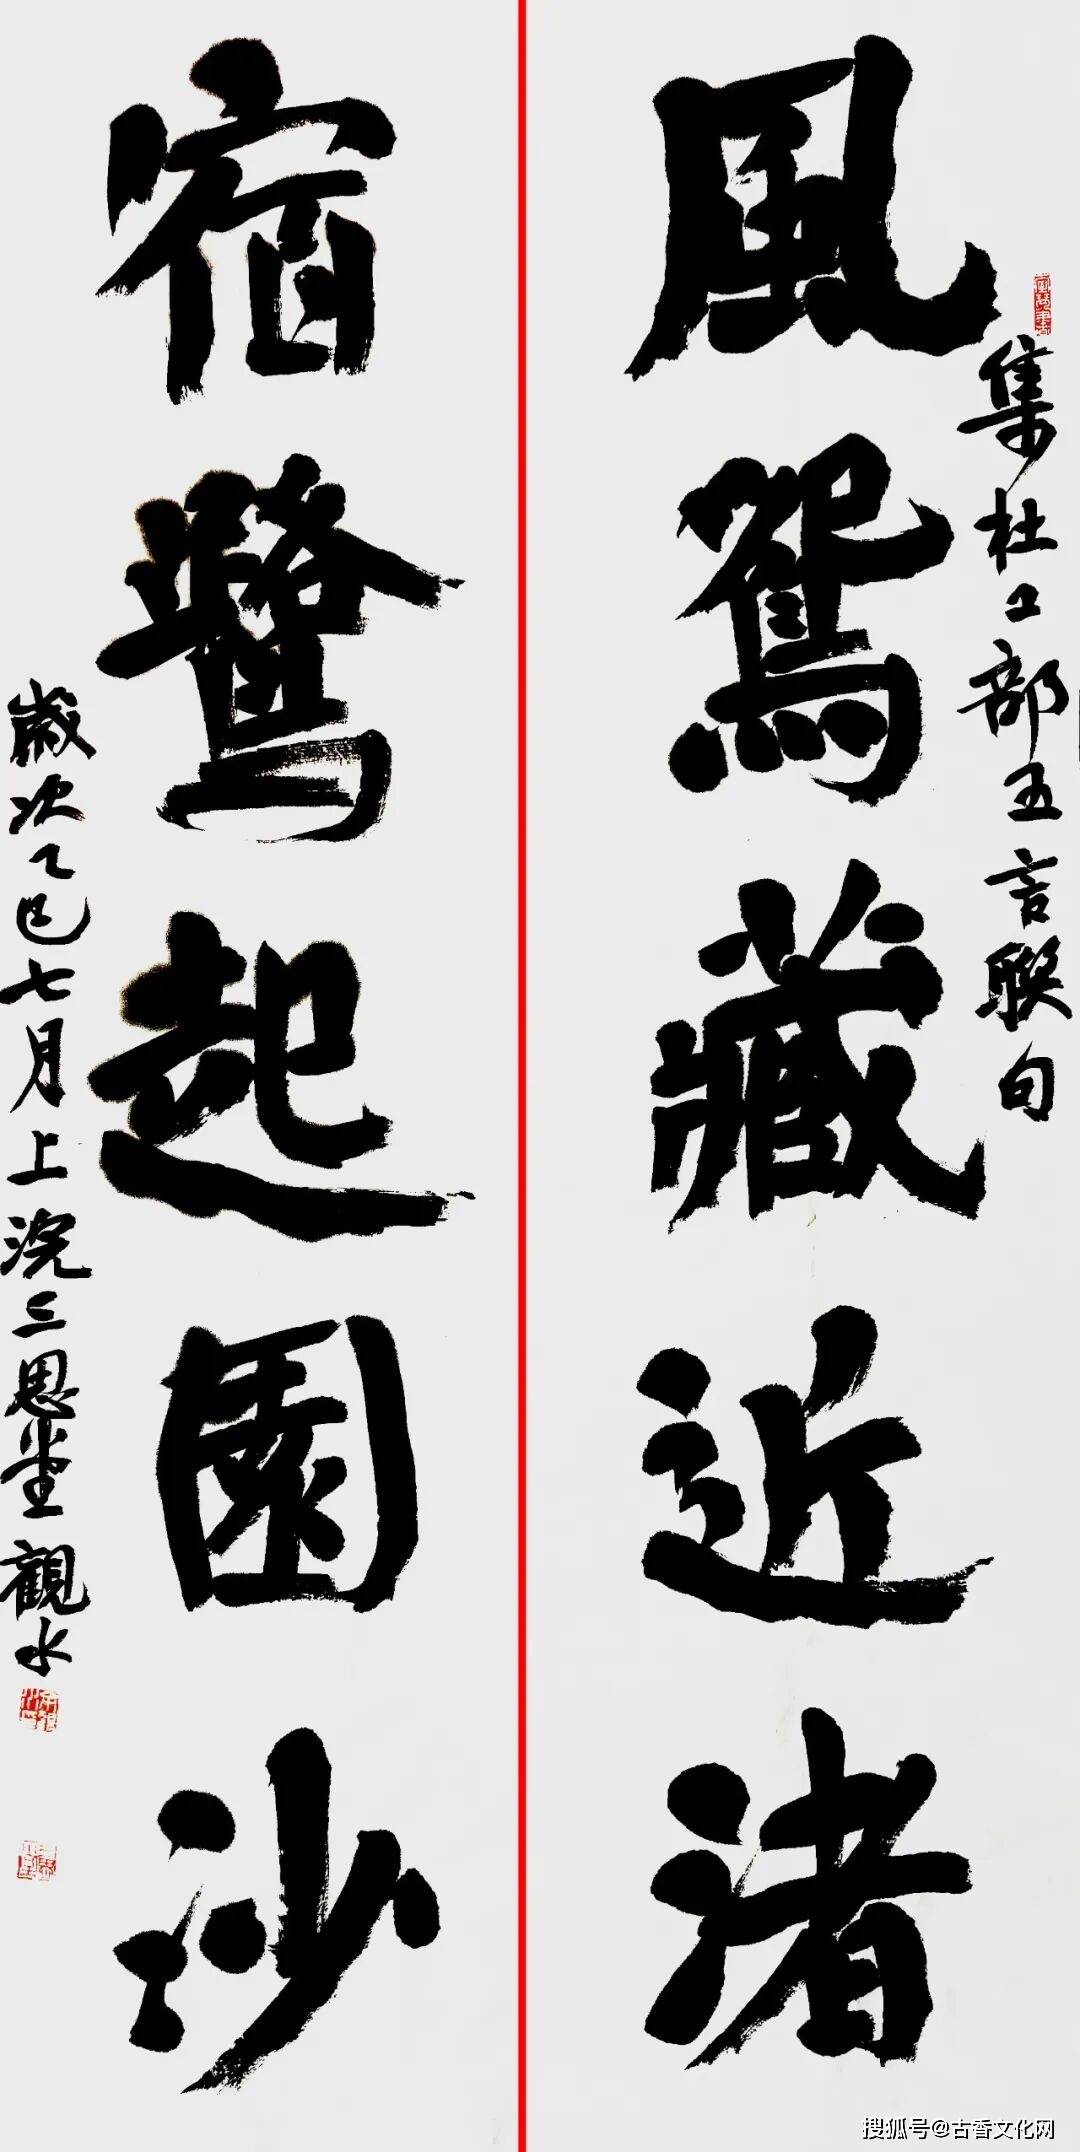 集杜工部五言聯句
風鴛藏近渚
宿鷺起園沙
歲次乙巳七月上浣三思堂觀水
搜狐号@古香文化网